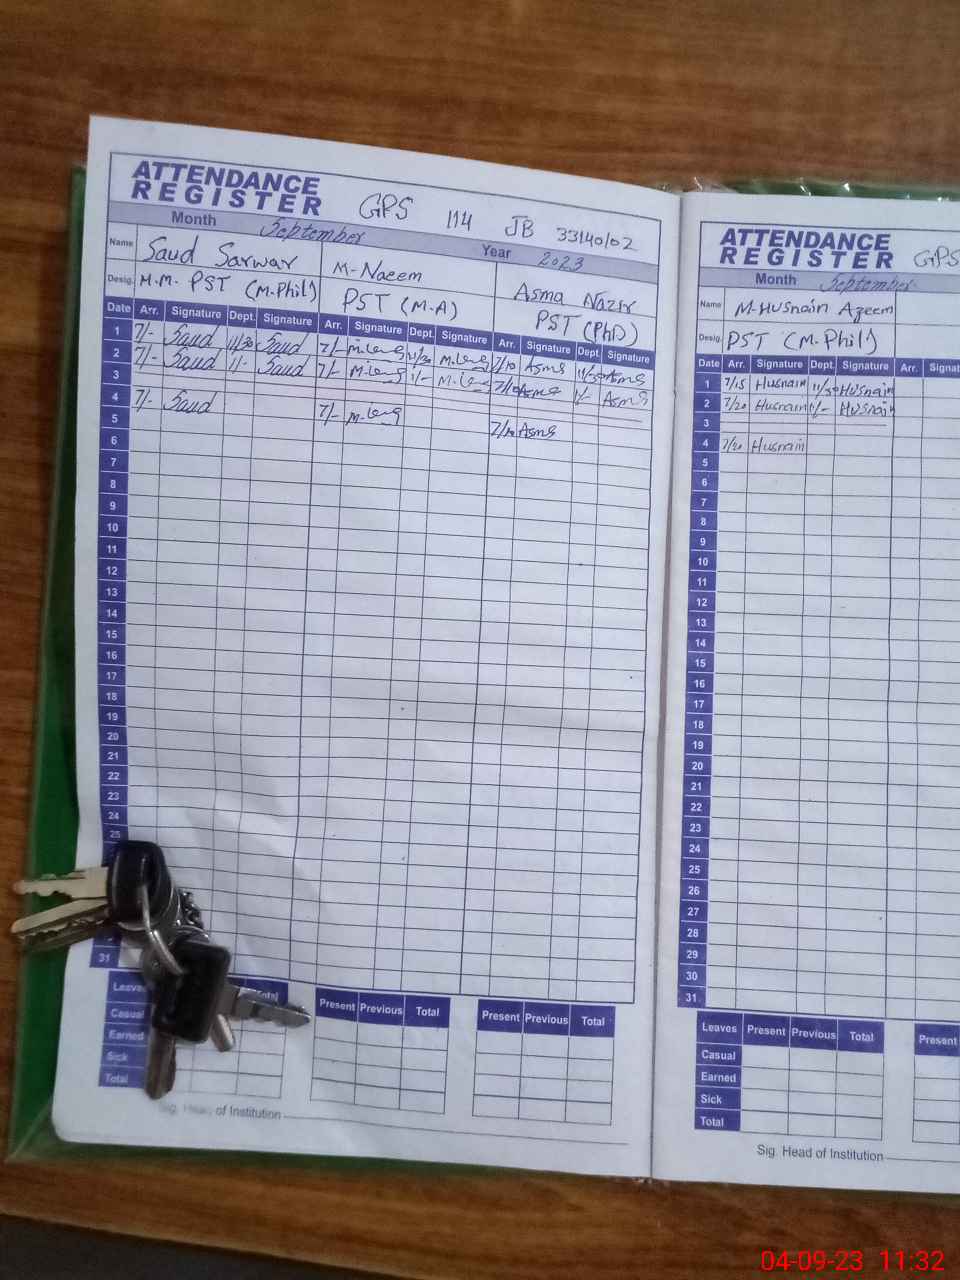 ATTENDANCE
REGISTER
GPS 114 JB 33140102
Month September Year 2023
Name Saud Sarwar M-Naeem Asma Nazir
Desig. H.M. PST (M.Phil) PST (M-A) PST (PhD)
Date Arr. Signature Dept. Signature Arr. Signature Dept. Signature Arr. Signature Dept. Signature
1 7/- Saud 11/30 Saud 7/- 11/30 7/10 Asma 11/30 Asma
2 7/- Saud 1/- Saud 7/- 1/- 7/10 Asma 1/- Asma
3
4 7/- Saud 7/- 7/10 Asma
5
6
7
8
9
10
11
12
13
14
15
16
17
18
19
20
21
22
23
24
25
31
Leaves Total Present Previous Total Present Previous Total
Casual
Earned
Sick
Total
Sig. Head of Institution
ATTENDANCE
REGISTER
GPS
Month September
Name M-Husnain Azeem
Desig. PST (M.Phil)
Date Arr. Signature Dept. Signature Arr.
1 7/15 Husnain 11/30 Husnain
2 7/20 Husnain 1/- Husnain
3
4 7/20 Husnain
5
6
7
8
9
10
11
12
13
14
15
16
17
18
19
20
21
22
23
24
25
26
27
28
29
30
31
Leaves Present Previous Total Present
Casual
Earned
Sick
Total
Sig. Head of Institution
04-09-23 11:32